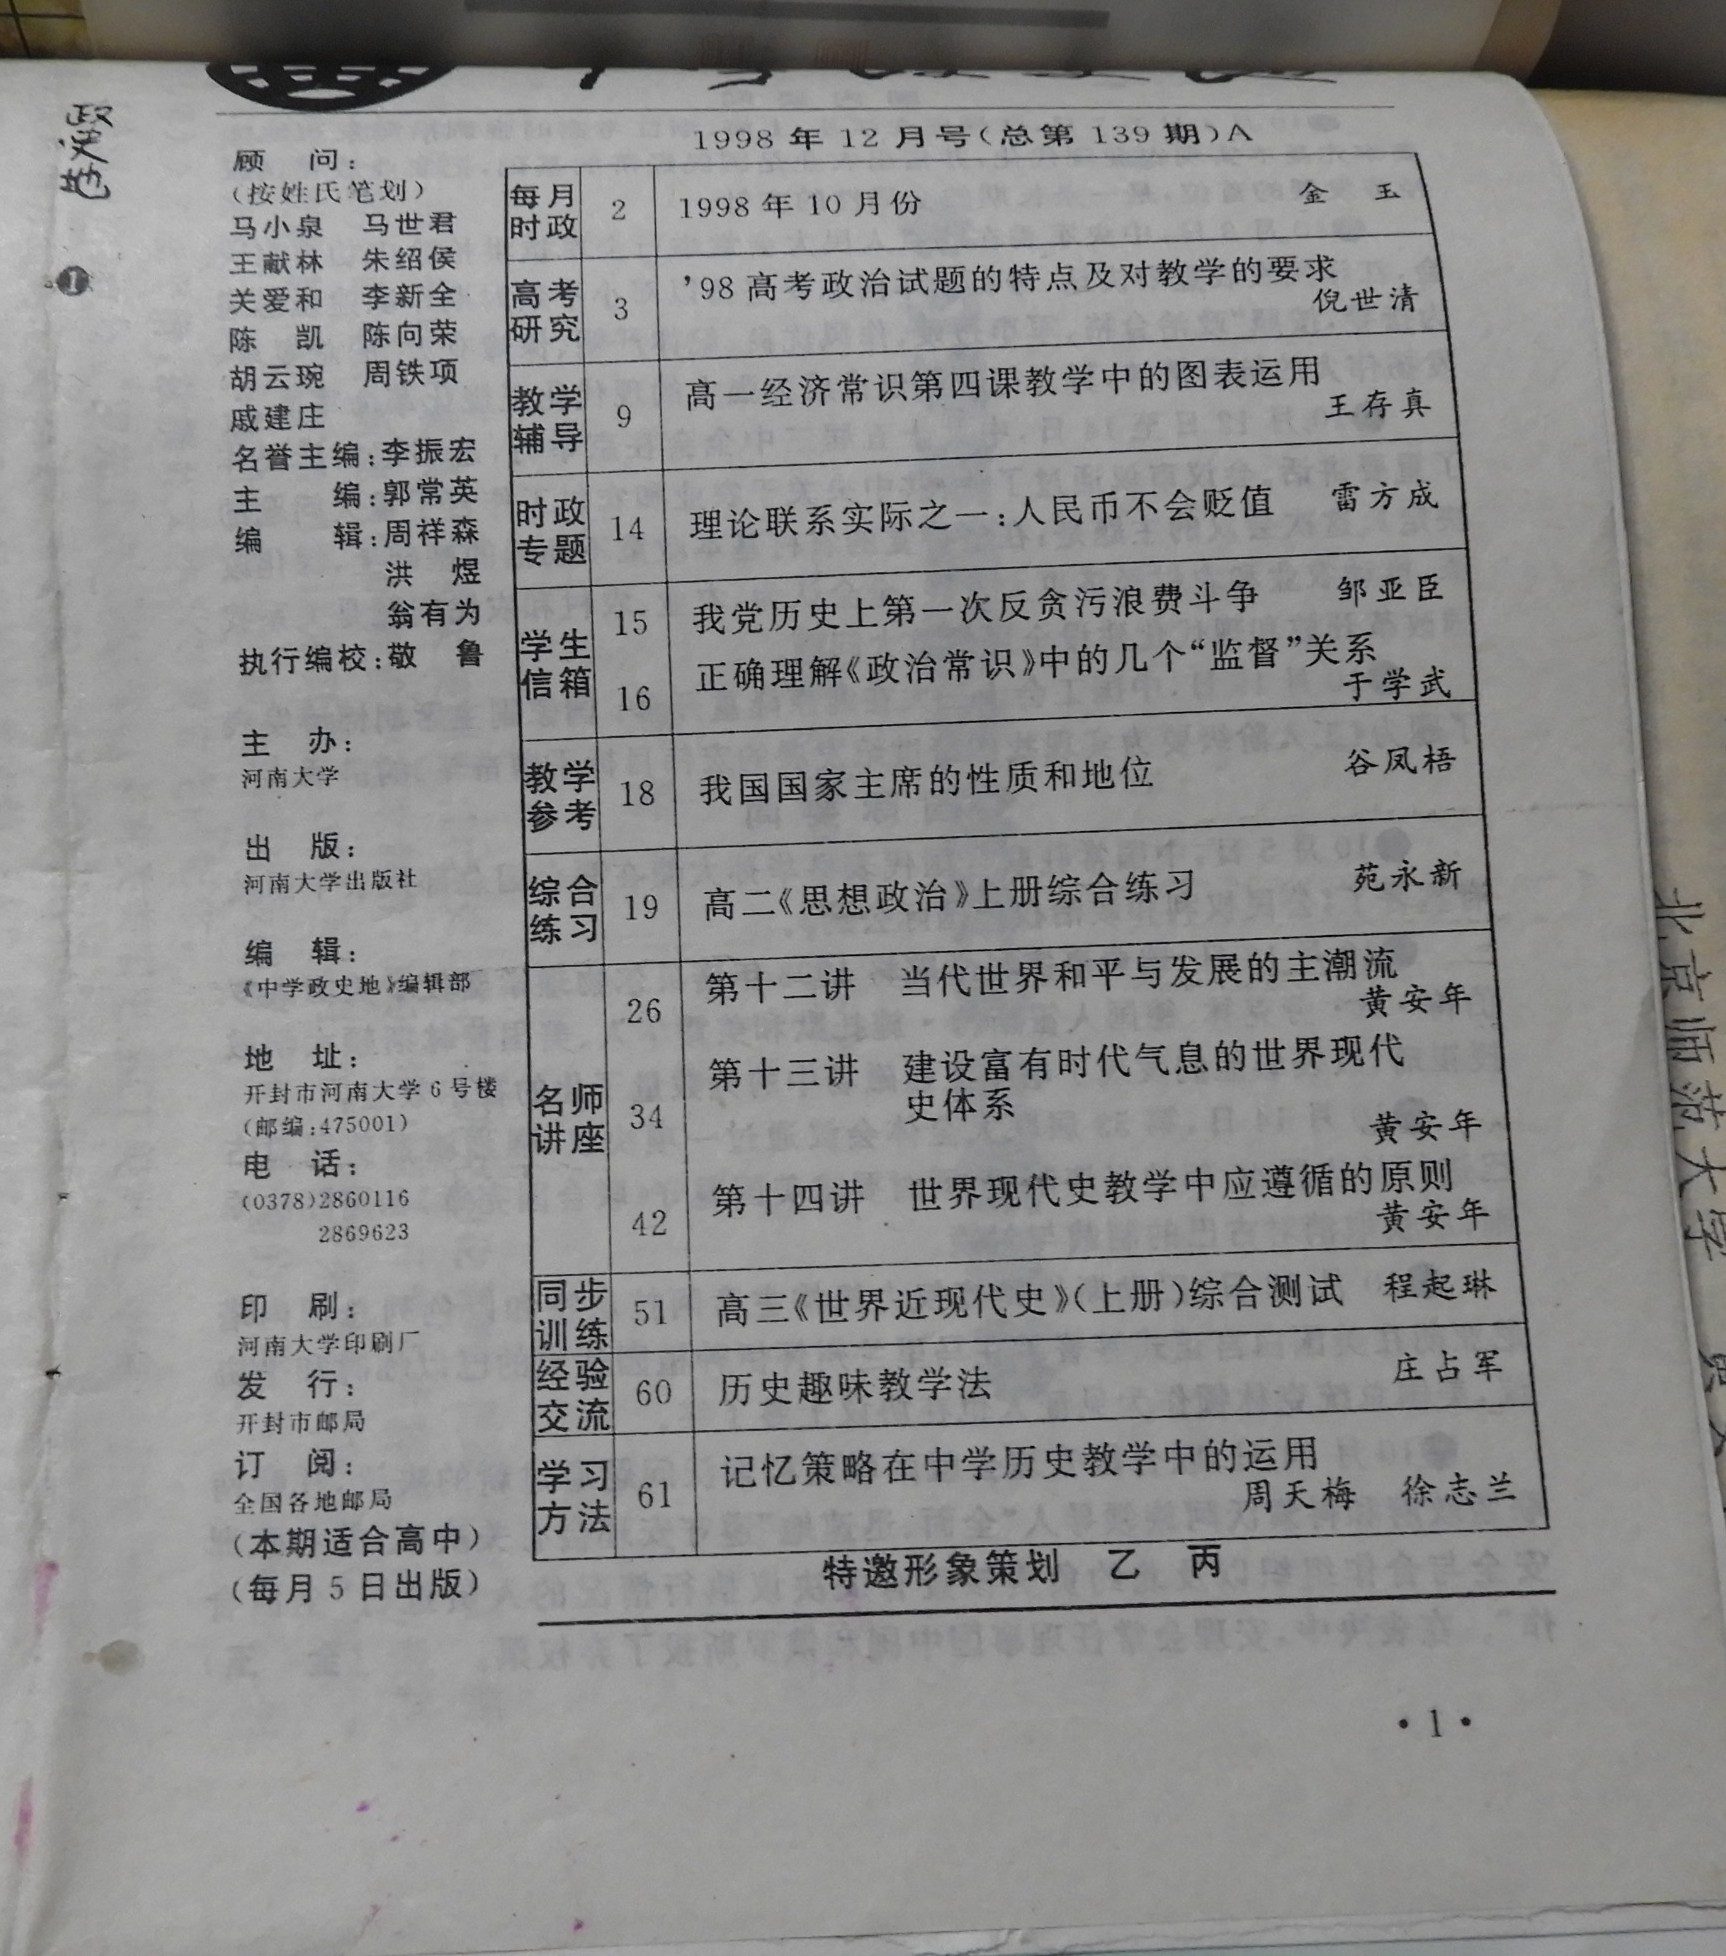 政
史
地
1
1998年12月号(总第139期)A
顾 问:
(按姓氏笔划)
马小泉 马世君
王献林 朱绍侯
关爱和 李新全
陈 凯 陈向荣
胡云琬 周铁项
戚建庄
名誉主编:李振宏
主 编:郭常英
编 辑:周祥森
洪 煜
翁有为
执行编校:敬 鲁
主 办:
河南大学
出 版:
河南大学出版社
编 辑:
《中学政史地》编辑部
地 址:
开封市河南大学6号楼
(邮编:475001)
电 话:
(0378)2860116
2869623
印 刷:
河南大学印刷厂
发 行:
开封市邮局
订 阅:
全国各地邮局
(本期适合高中)
(每月5日出版)
每月
时政
2
1998年10月份 金 玉
高考
研究
3
'98高考政治试题的特点及对教学的要求
倪世清
教学
辅导
9
高一经济常识第四课教学中的图表运用
王存真
时政
专题
14
理论联系实际之一:人民币不会贬值 雷方成
学生
信箱
15
我党历史上第一次反贪污浪费斗争 邹亚臣
16
正确理解《政治常识》中的几个“监督”关系
于学武
教学
参考
18
我国国家主席的性质和地位 谷凤梧
综合
练习
19
高二《思想政治》上册综合练习 苑永新
名师
讲座
26
第十二讲 当代世界和平与发展的主潮流
黄安年
34
第十三讲 建设富有时代气息的世界现代
史体系
黄安年
42
第十四讲 世界现代史教学中应遵循的原则
黄安年
同步
训练
51
高三《世界近现代史》(上册)综合测试 程起琳
经验
交流
60
历史趣味教学法 庄占军
学习
方法
61
记忆策略在中学历史教学中的运用
周天梅 徐志兰
特邀形象策划 乙 丙
·1·
北京师范大学